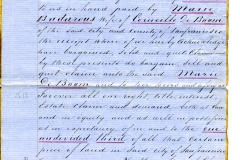 to as in hand paid by Marie
Badarous wife of Corneille De Boom
of the said city and county of San Francisco
the receipt whereof is hereby acknowledged
have bargained, sold and quit claimed
by these presents do bargain sell and
quit claim unto the said Marie
De Boom and to her heirs and assigns
forever all our right title interest
Estate Claim and demand both at law
and in equity and as well in possession
as in expectancy of in and to the One
undivided third of all that certain
piece of land in said city of San Francisco